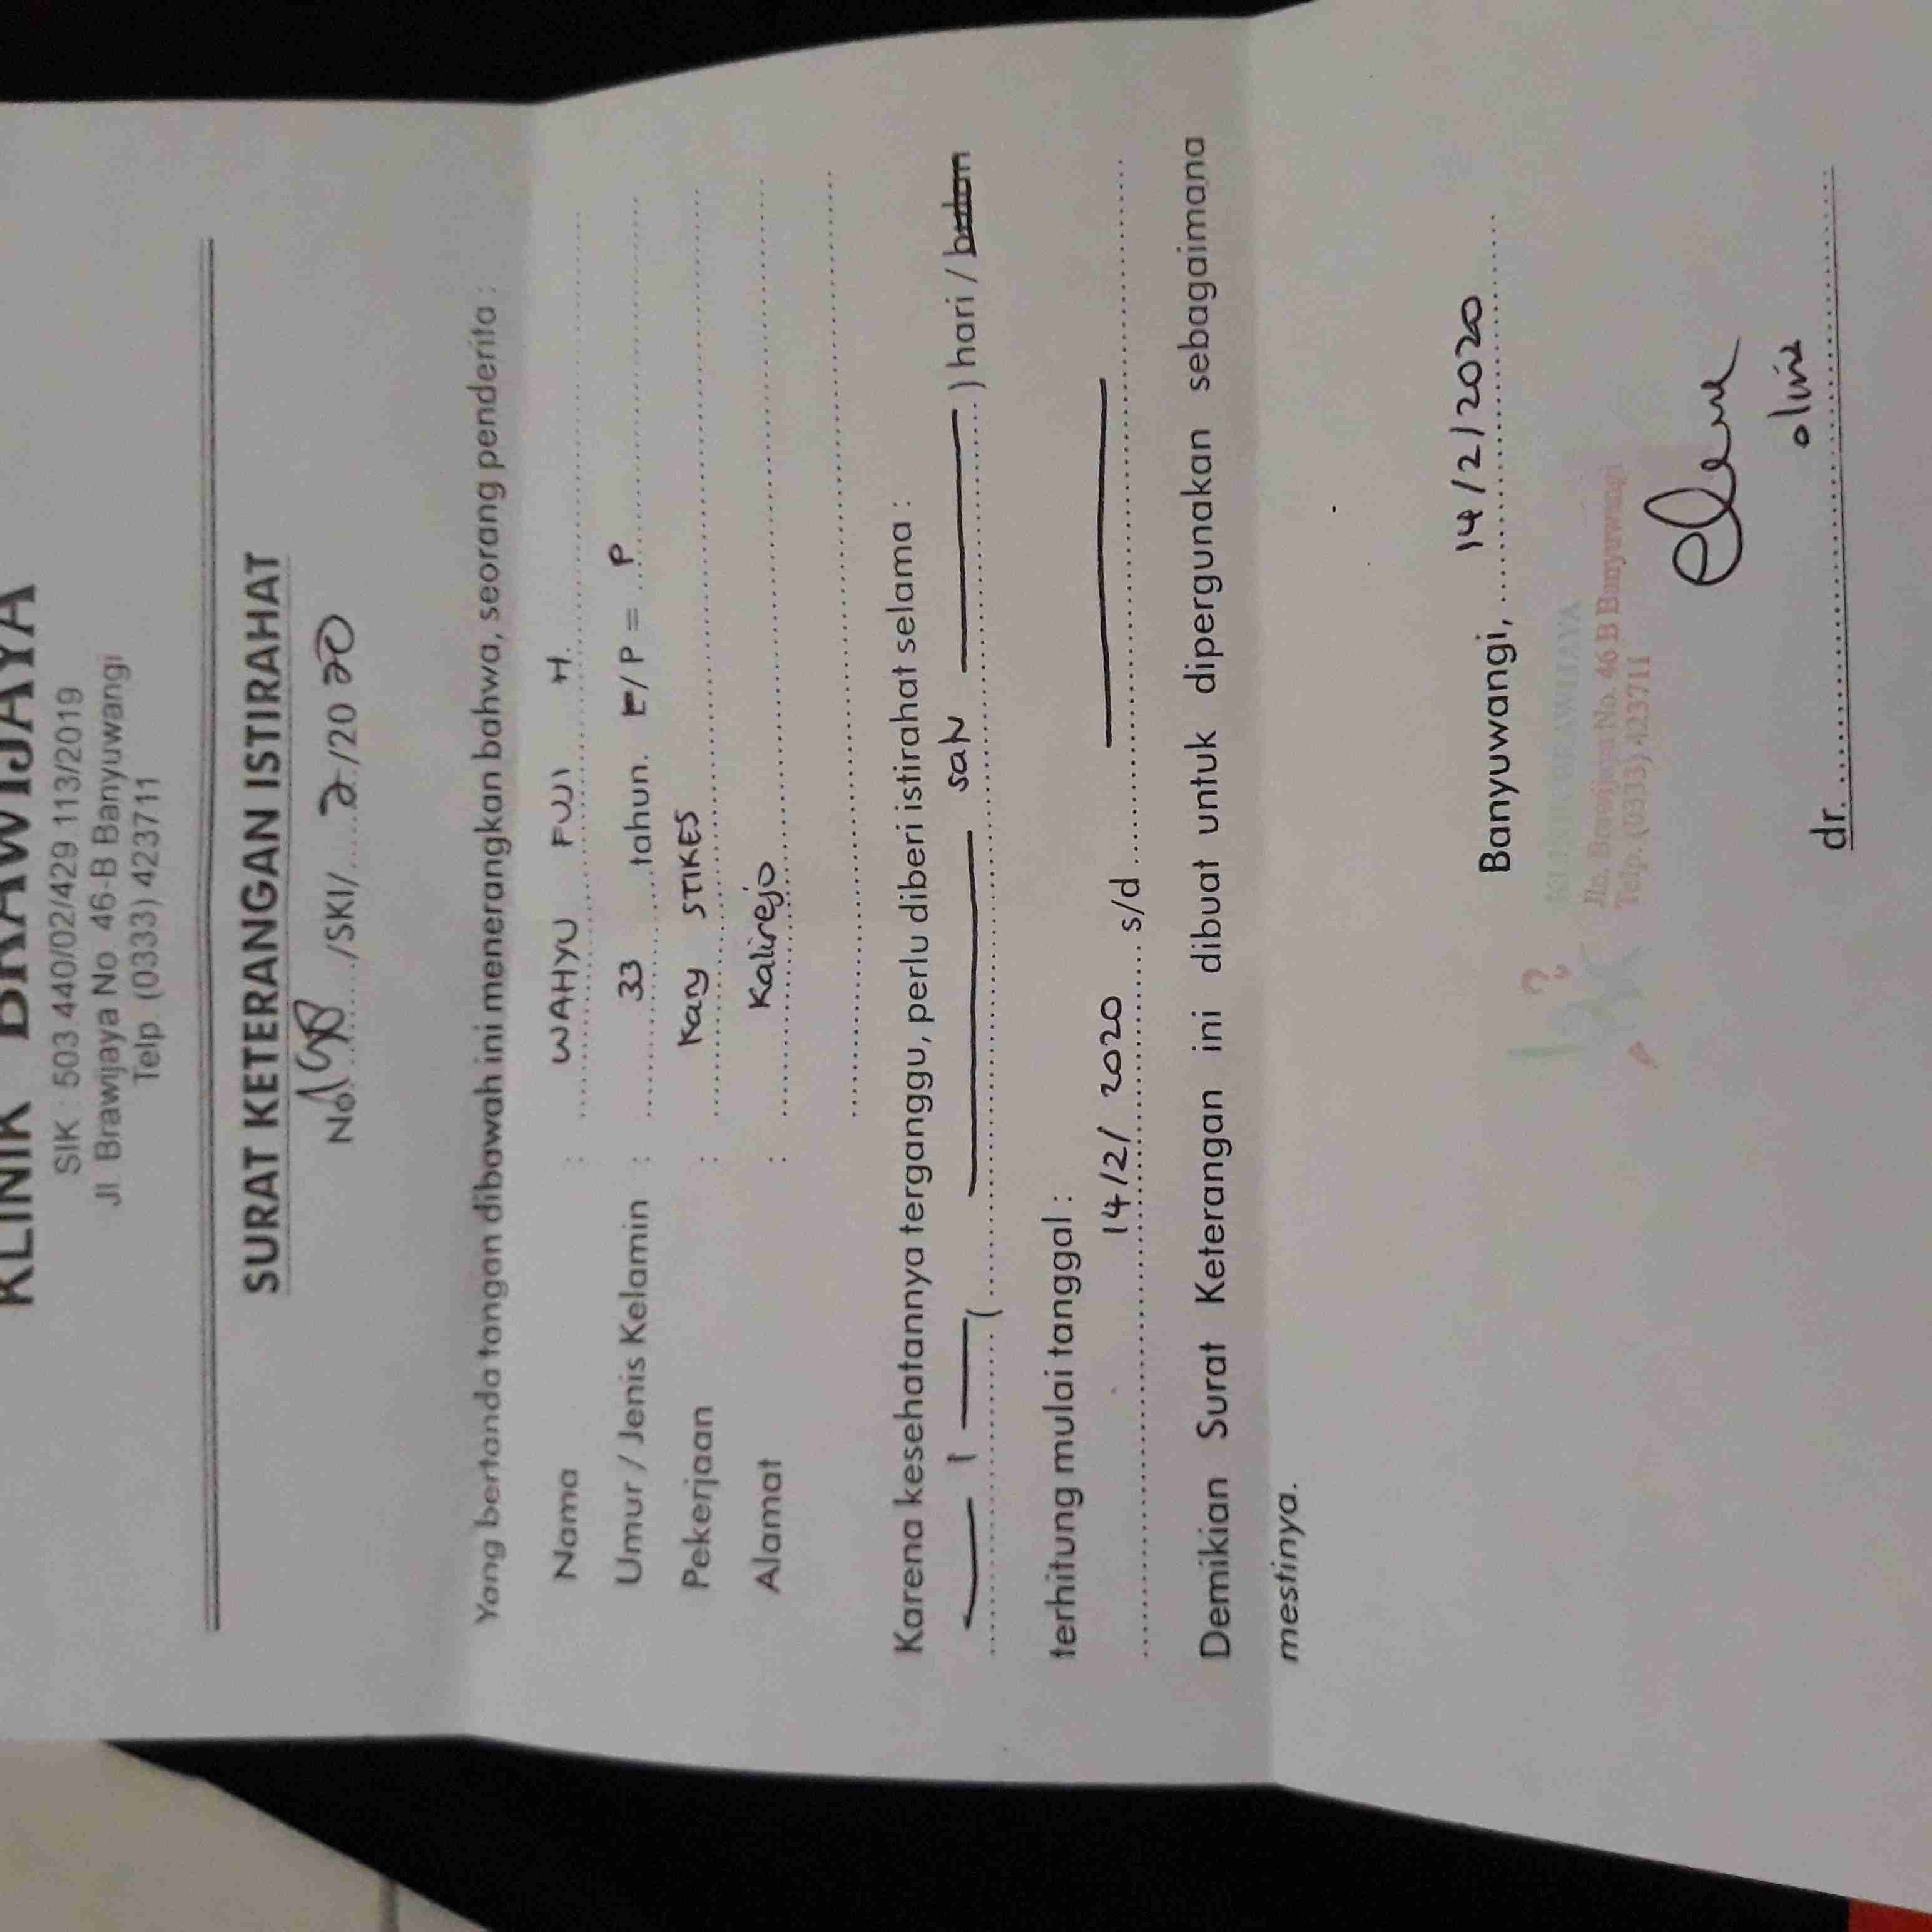 KLINIK BRAWIJAYA
SIK : 503.440/02/429.113/2019
Jl. Brawijaya No. 46-B Banyuwangi
Telp. (0333) 423711
SURAT KETERANGAN ISTIRAHAT
No. 198 /SKI/ 2 /20 20
Yang bertanda tangan dibawah ini menerangkan bahwa, seorang penderita :
Nama : WAHYU FUJI H.
Umur / Jenis Kelamin : 33 tahun. L/ P = P
Pekerjaan : Kary STIKES
Alamat : Kalirejo
Karena kesehatannya terganggu, perlu diberi istirahat selama :
1 ( satu ) hari / bulan
terhitung mulai tanggal :
14/2/ 2020 s/d
Demikian Surat Keterangan ini dibuat untuk dipergunakan sebagaimana
mestinya.
Banyuwangi, 14/2/2020
KLINIK BRAWIJAYA
Jln. Brawijaya No. 46 B Banyuwangi
Telp. (0333) 423711
dr. olivia